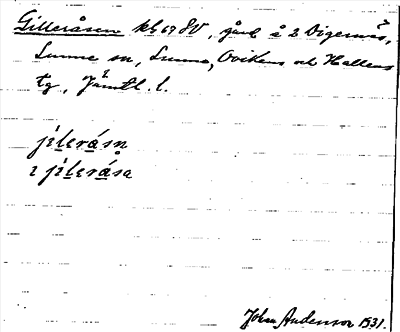 Gilleråsen kbl 69 SV, gård å 2 Digernäs,
Sunne sn, Sunne, Ovikens och Hallens
tg, Jämtl. l.
jìlɛråsn̥
i jìlɛråsa
John Anderson 1931.